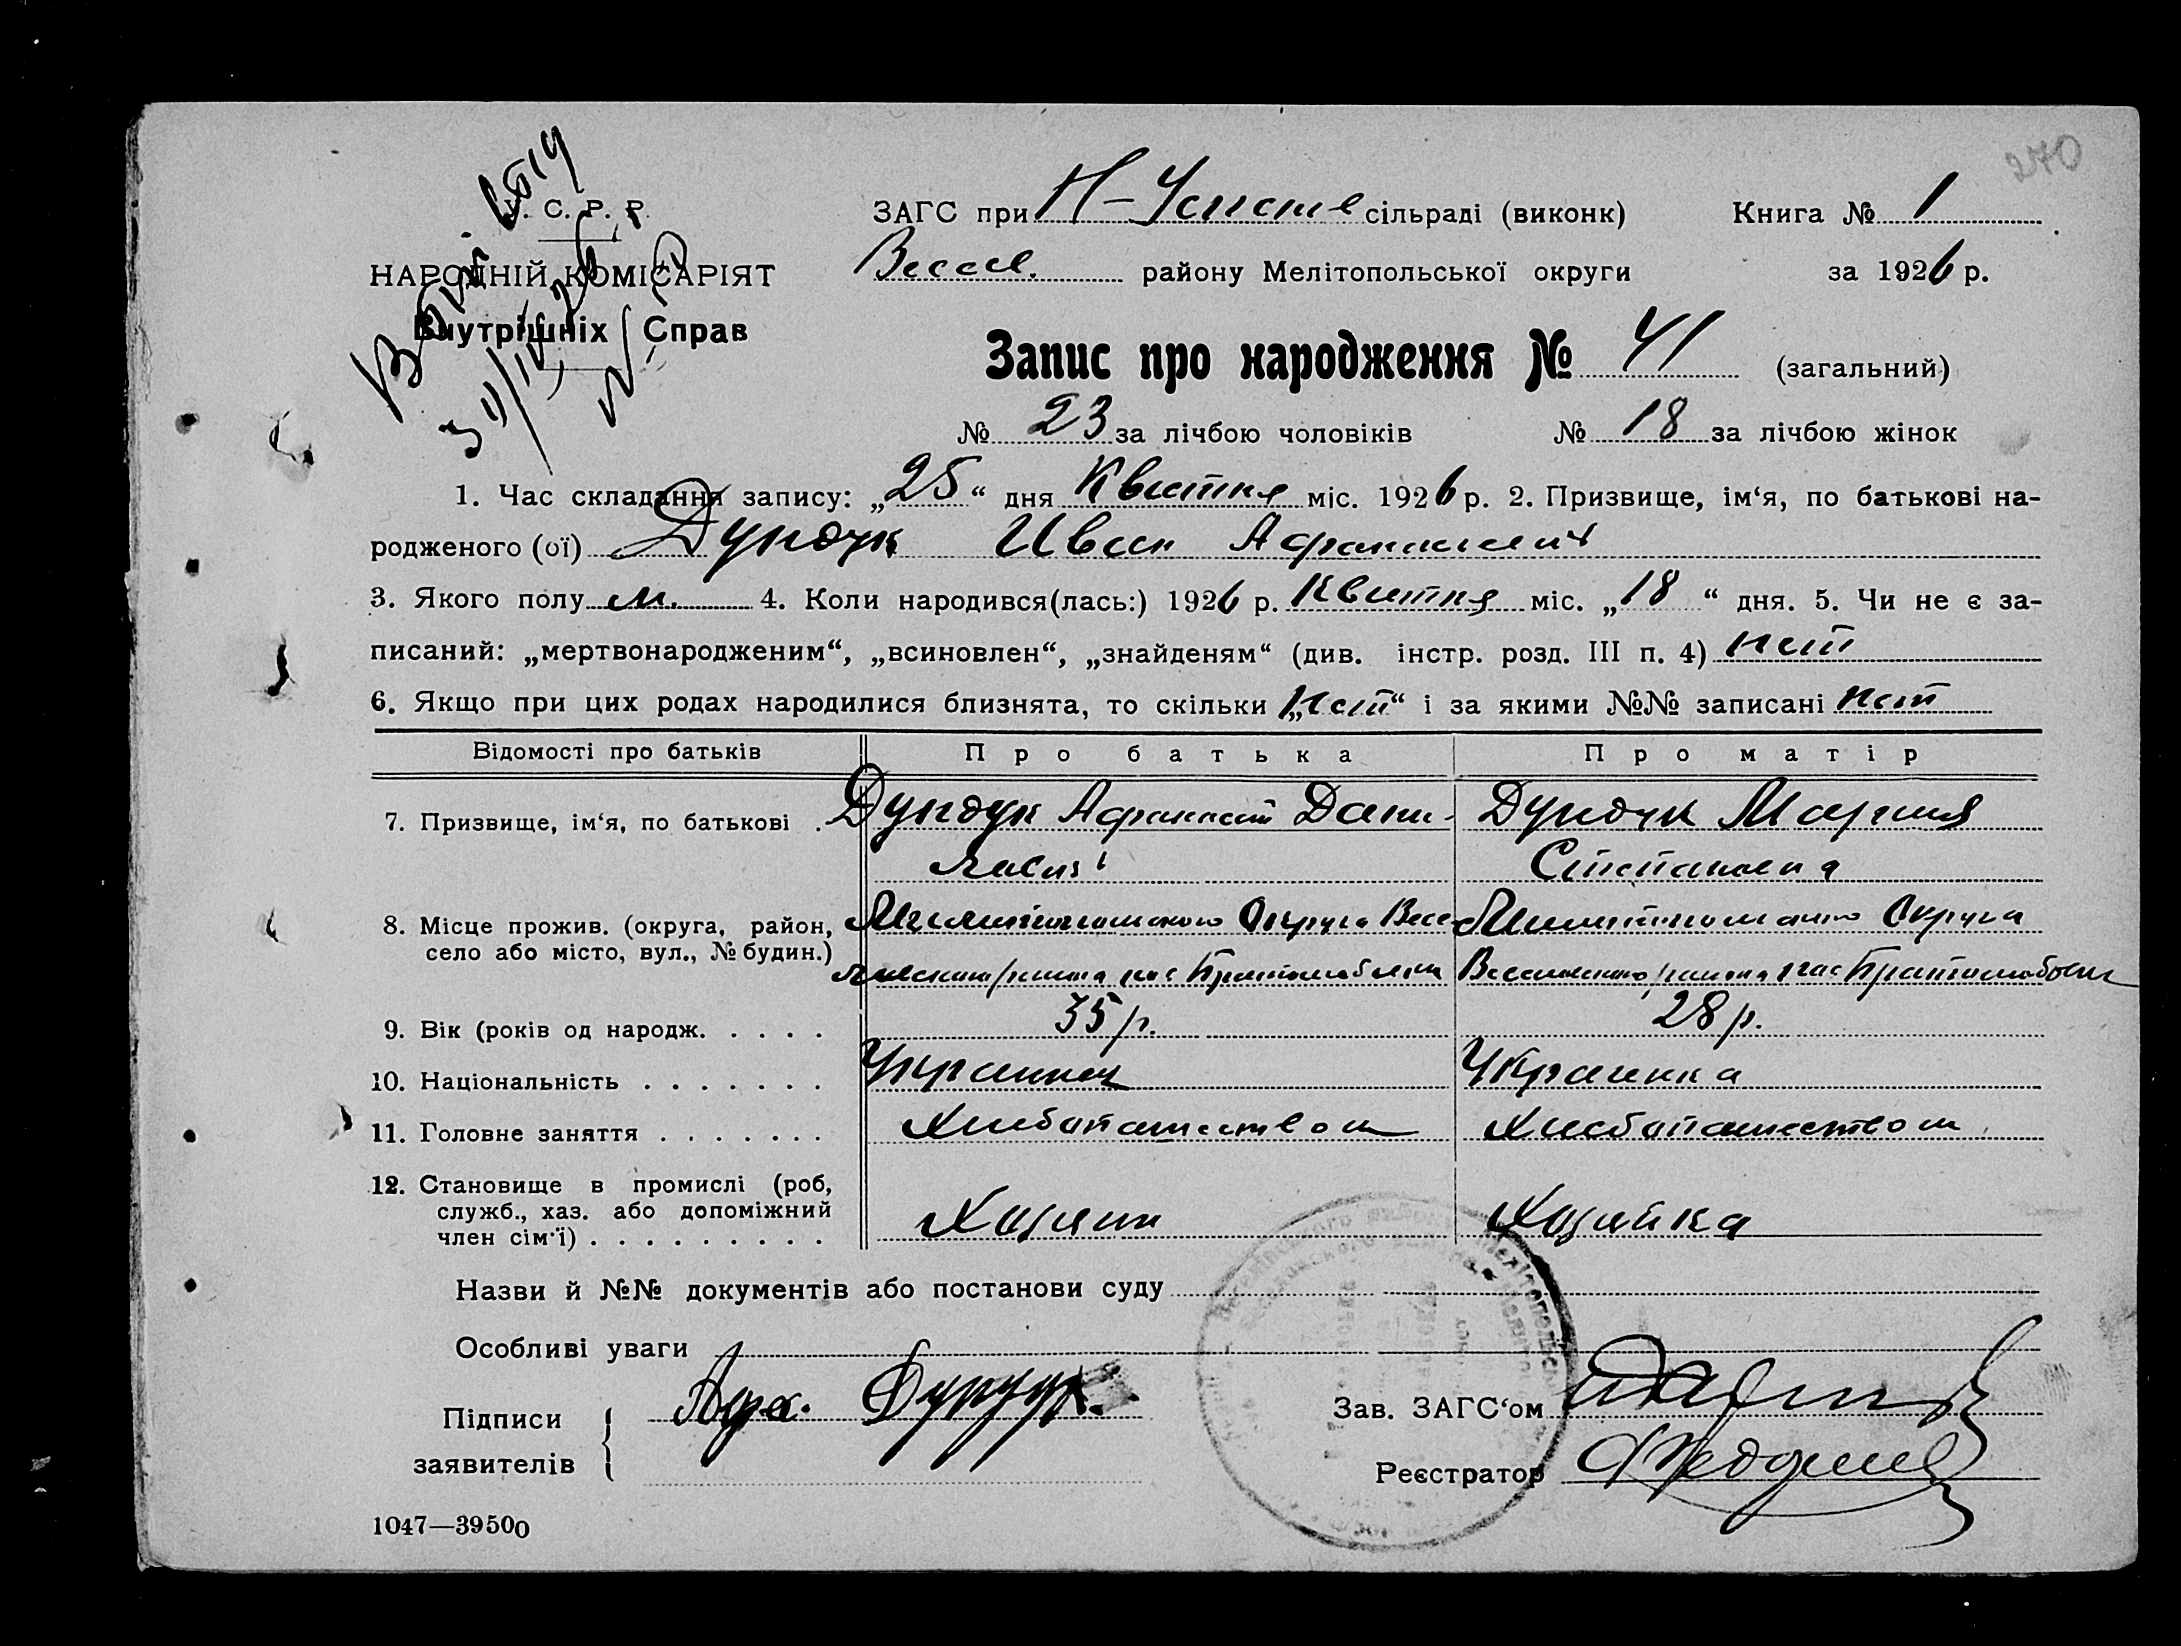 270
У. С. Р. Р.
НАРОДНІЙ КОМІСАРІЯТ
Внутрішніх Справ
ЗАГС при Н-Успене сільраді (виконк) Книга № 1
Весел. району Мелітопольської округи за 1926 р.
Запис про народження № 41 (загальний)
№ 23 за лічбою чоловіків № 18 за лічбою жінок
1. Час складання запису: „25“ дня Квитня міс. 1926 р. 2. Призвище, ім‘я, по батькові на-
родженого (ої) Дундук Иван
3. Якого полу м. 4. Коли народився(лась:) 1926 р. Квитня міс. „18“ дня. 5. Чи не є за-
писаний: „мертвонародженим“, „всиновлен“, „знайденям“ (див. інстр. розд. III п. 4) нет
6. Якщо при цих родах народилися близнята, то скільки „нет“ і за якими №№ записані нет
Відомості про батьків Про батька Про матір
7. Призвище, ім‘я, по батькові . Дундук Афанасий Дани- Дундук Мария
Степановна
8. Місце прожив. (округа, район, село або місто, вул., № будин.) Округа Весе- Округа
района Братолюбовка района Братолюбовка
9. Вік (років од народж. . . . . 35 р. 28 р.
10. Національність . . . . . . . Украинец Украинка
11. Головне заняття . . . . . . . Хлебопашеством Хлебопашеством
12. Становище в промислі (роб, служб., хаз. або допоміжний член сім‘ї) . . . . . . . . . Хозяин Хозяйка
Назви й №№ документів або постанови суду
Особливі уваги
Підписи
заявителів
Афа. Дундук.
Зав. ЗАГС‘ом
Реєстратор
1047—39500